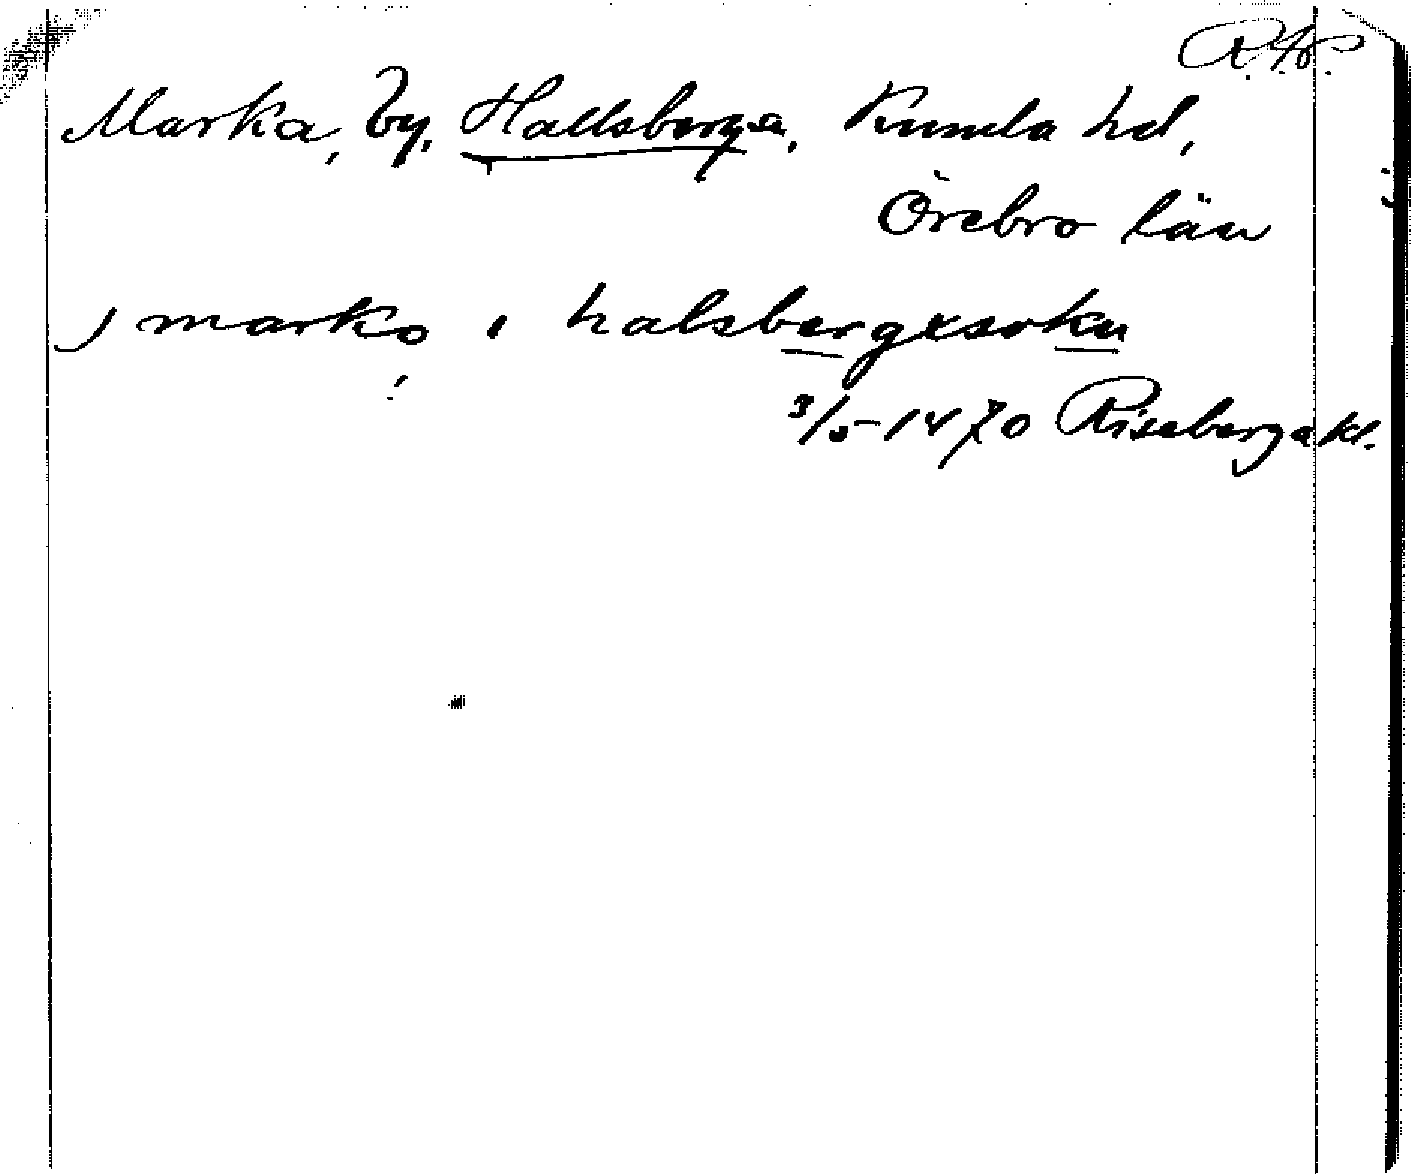 R.A.P.
Marka, by, Hallsberga, Kumla hd,
Örebro län
J marko, i halsbergxsokn
!
3/5-1470 Riseberga kl.